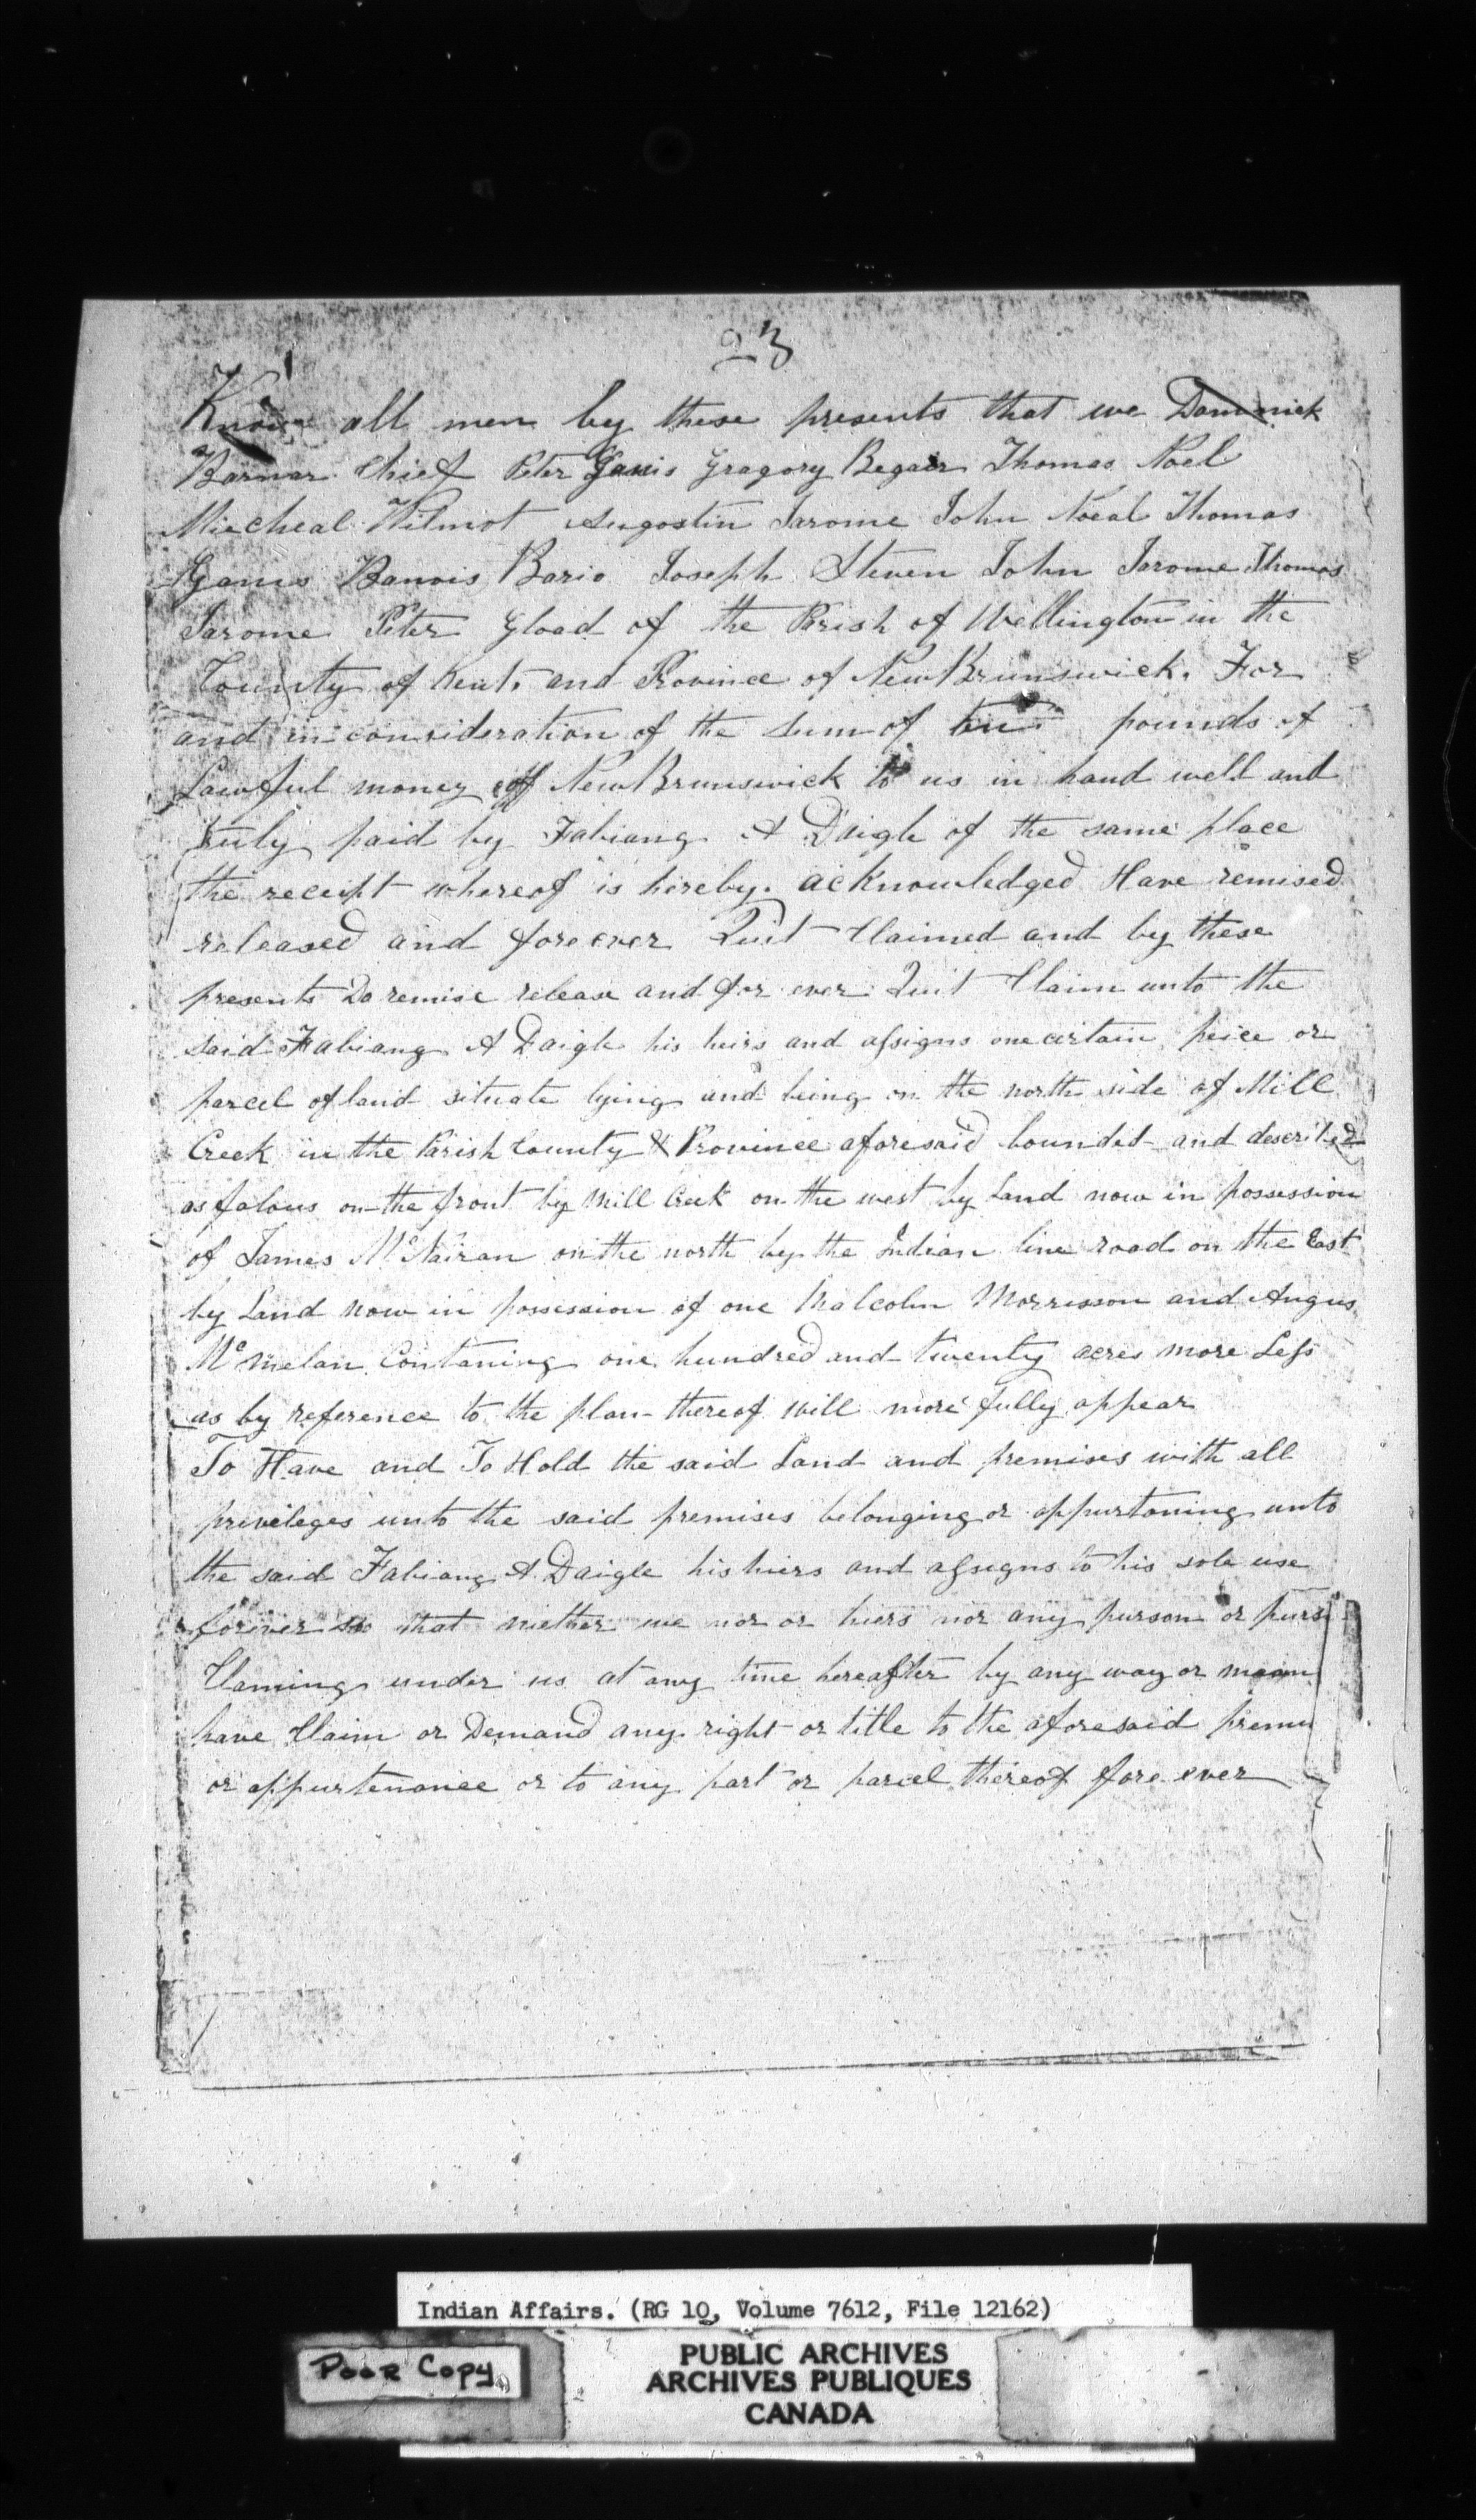 23
Know all men by these presents that we Dominick
Barnar Chief Peter Ganis Gragory Begaer Thomas Noel
Miecheal Wilmot Augostin Jarome John Noeal Thomas
Ganis Banois Bario Joseph Steven John Jarome Thomas
Jarome Peter Gload of the Parish of Wellington in the
County of Kent. and Province of New Brunswick. For
and in consideration of the sum of pounds of
Lawful money off New Brunswick to us in hand well and
truly paid by Fabiang A Daigle of the same place
the receipt whereof is hereby. acknowledged Have remised
released and foreever Quit Claimed and by these
presents Do remise release and for ever Quit Claim unto the
said Fabiang A Daigle his heirs and assigns one certain peice or
parcel of land situate lying and being on the north side of Mill
Creek in the Parish County & Province aforesaid bounded and described
as falous on the front by Mill Creek on the west by Land now in possession
of James McNairan on the north by the Indian line road on the East
by Land now in possession of one Malcolm Morrisson and Angus
Mcmelan Contaning one hundred and twenty acres more Less
as by reference to the plan thereof will more fully appear
To Have and To Hold the said Land and premises with all
privileges unto the said premises belonging or appurtaning unto
the said Fabiang A. Daigle his hiers and assigns to his sole use
foriver so that niether we nor or hiers nor any purson or purs
Claming under us at any time hereafter by any way or mean
have Claim or Demand any right or title to the aforesaid premi
or appurtenance or to any part or parcel thereof fore ever
Indian Affairs. (RG 10, Volume 7612, File 12162)
Poor Copy
PUBLIC ARCHIVES
ARCHIVES PUBLIQUES
CANADA